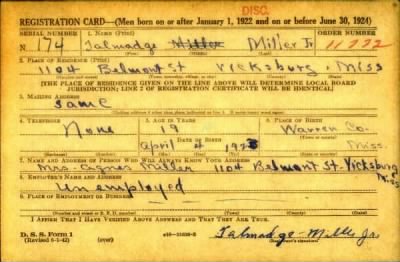 DISC.
REGISTRATION CARD—(Men born on or after January 1, 1922 and on or before June 30, 1924)
SERIAL NUMBER 1. NAME (Print) ORDER NUMBER
No. 174 Talmadge Miller Miller Jr 11722
(First) (Middle) (Last)
2. PLACE OF RESIDENCE (Print)
1104 Belmont St Vicksburg. Miss
[THE PLACE OF RESIDENCE GIVEN ON THE LINE ABOVE WILL DETERMINE LOCAL BOARD
JURISDICTION; LINE 2 OF REGISTRATION CERTIFICATE WILL BE IDENTICAL]
3. MAILING ADDRESS
Same
4. TELEPHONE 5. AGE IN YEARS 6. PLACE OF BIRTH
None 19 Warren Co.
DATE OF BIRTH
April 4 1923 Miss.
7. NAME AND ADDRESS OF PERSON WHO WILL ALWAYS KNOW YOUR ADDRESS
Mrs. Agnes Miller 1104 Belmont St. Vicksburg Miss
8. EMPLOYER'S NAME AND ADDRESS
Unemployed
9. PLACE OF EMPLOYMENT OR BUSINESS
I AFFIRM THAT I HAVE VERIFIED ABOVE ANSWERS AND THAT THEY ARE TRUE.
D. S. S. Form 1
(Revised 6-1-42) (over) Talmadge Miller Jr.
(Registrant's signature)